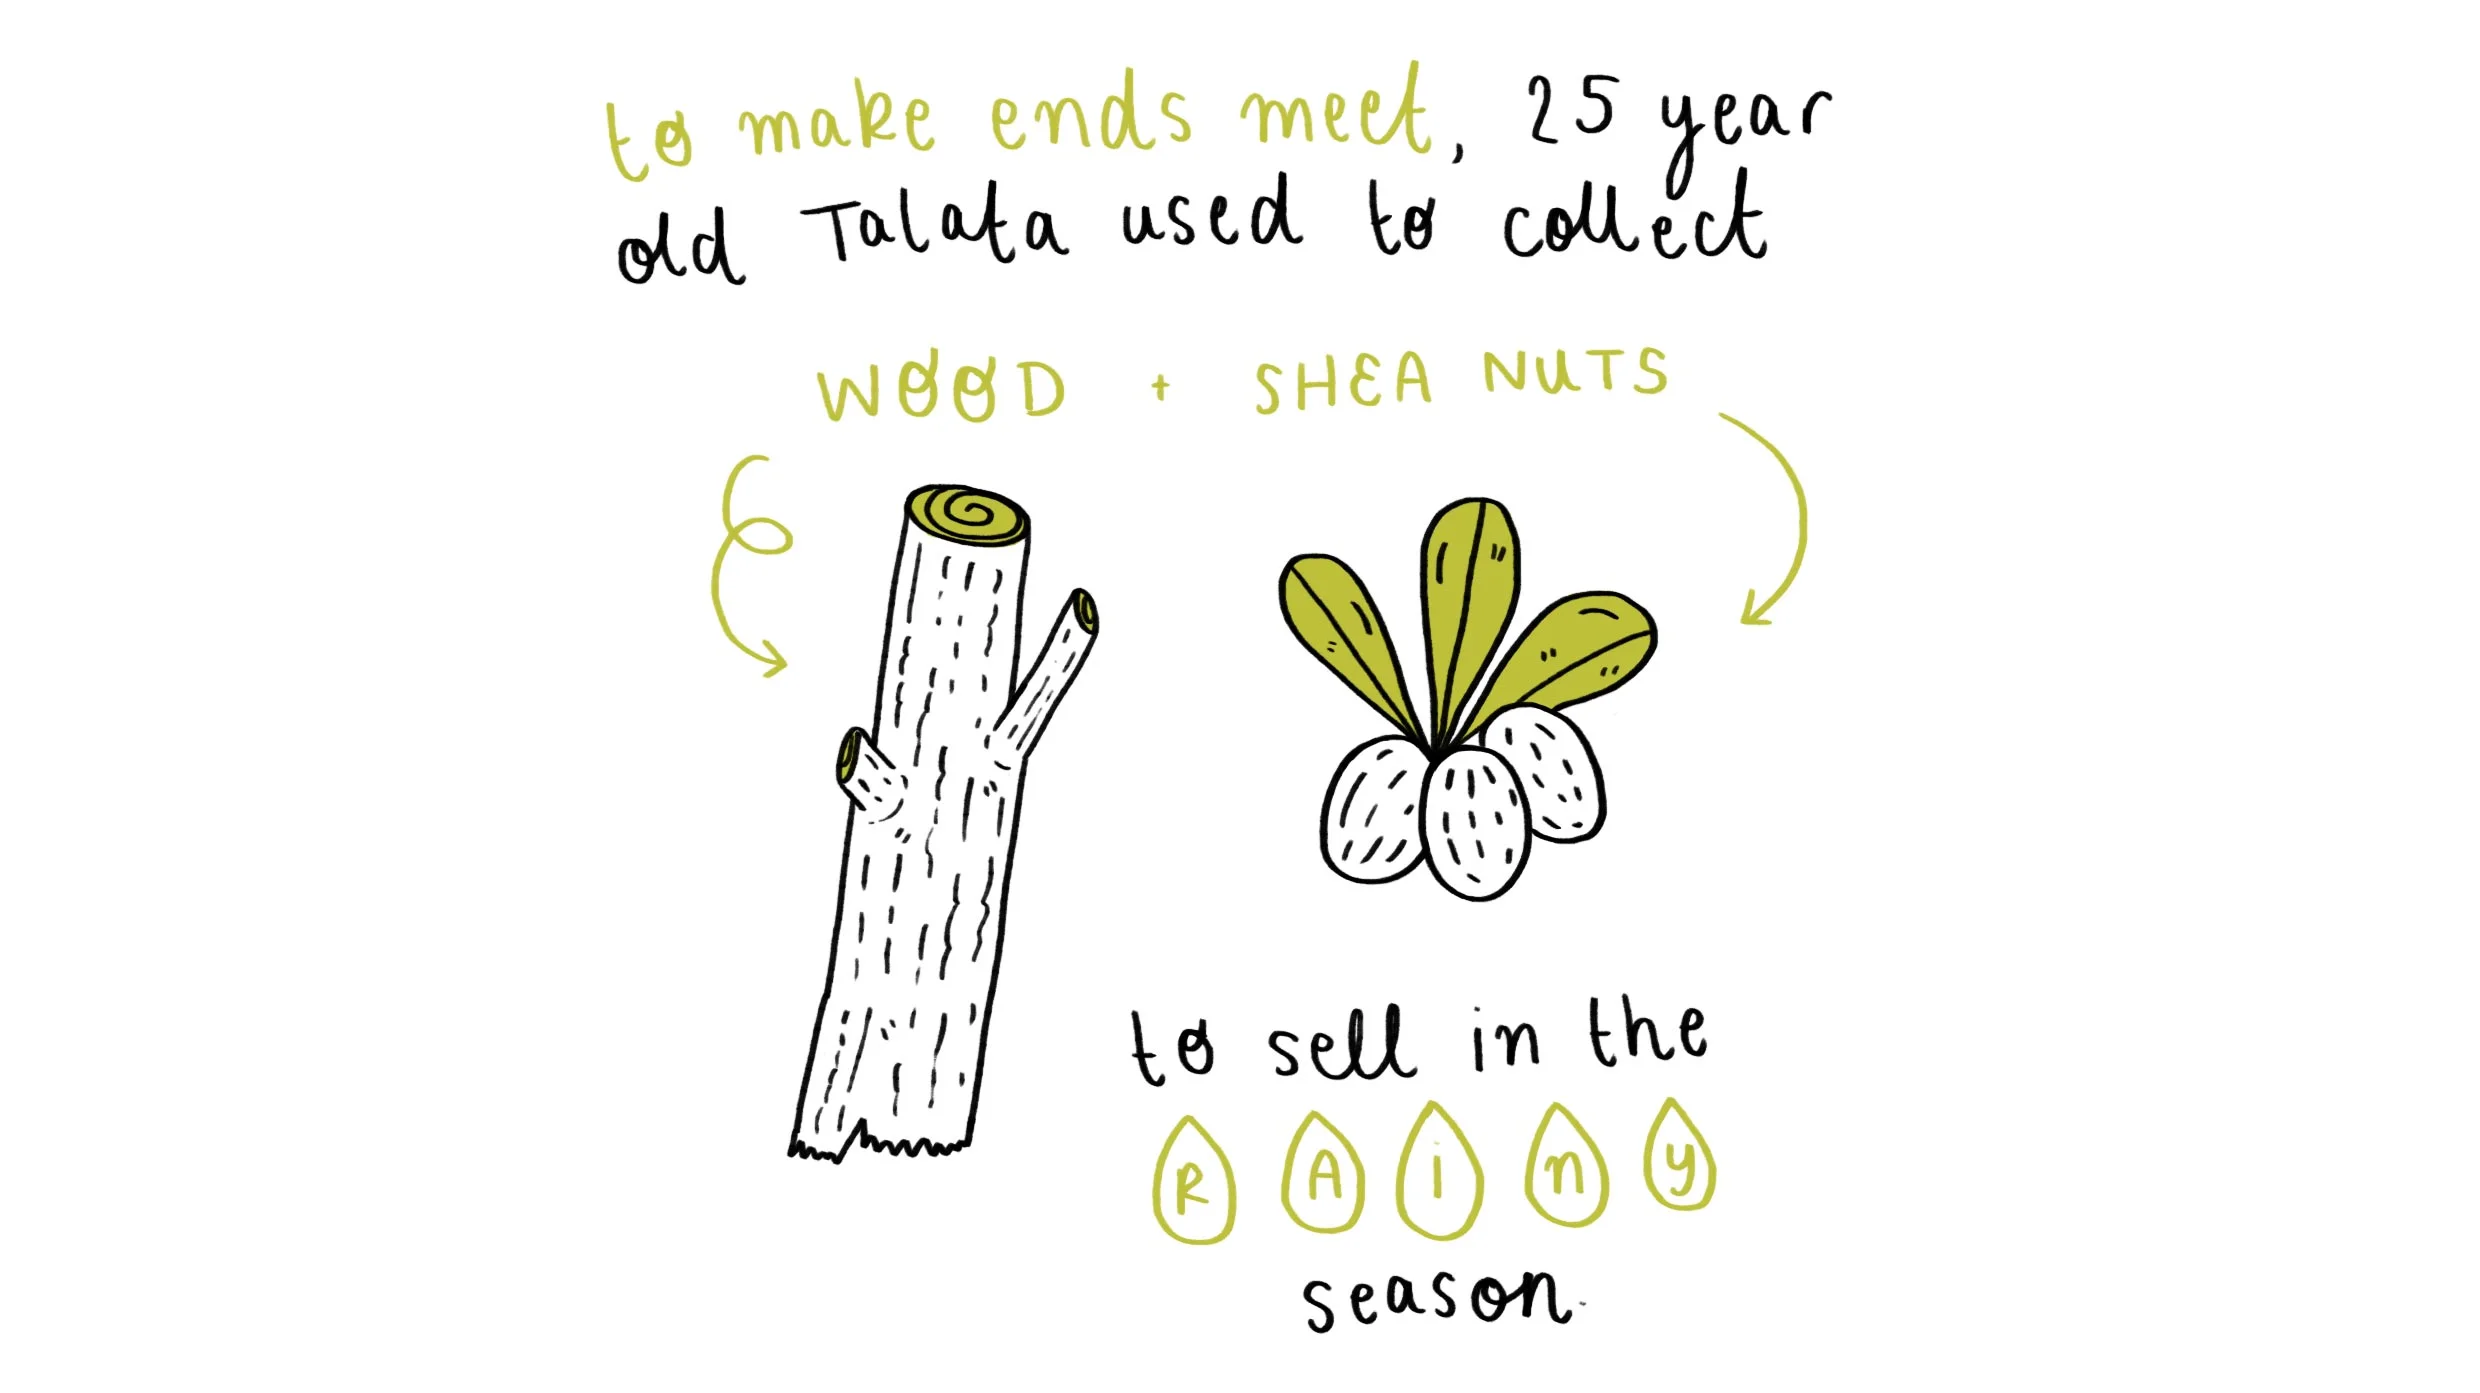 to make ends meet, 25 year
old Talata used to collect
WOOD + SHEA NUTS
to sell in the
RAiny
season.